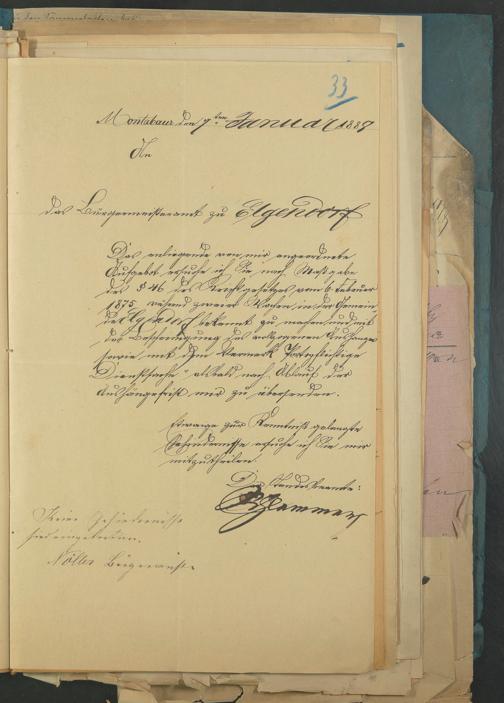 33
Montabaur den 7ten Januar 1889
An
das Bürgermeisteramt zu Elgendorf
Das anliegende von mir angeordnete
Aufgebot ersuche ich Sie nach Maßgabe
des § 46 des Reichsgesetzes vom 6. Februar
1875, während zweier Wochen in der Gemein
de Elgendorf bekannt zu machen und mit
der Bescheinigung des vollzogenen Aushanges
sowie mit dem Vermerk "Portopflichtige
Dienstsache" alsbald nach Ablauf der
Aushängefrist mir zu übersenden.
Etwaige zur Kenntniß gelangte
Hindernisse ersuche ich Sie mir
mitzutheilen.
Der Standesbeamte:
Keine Hindernisse
hier eingetreten.